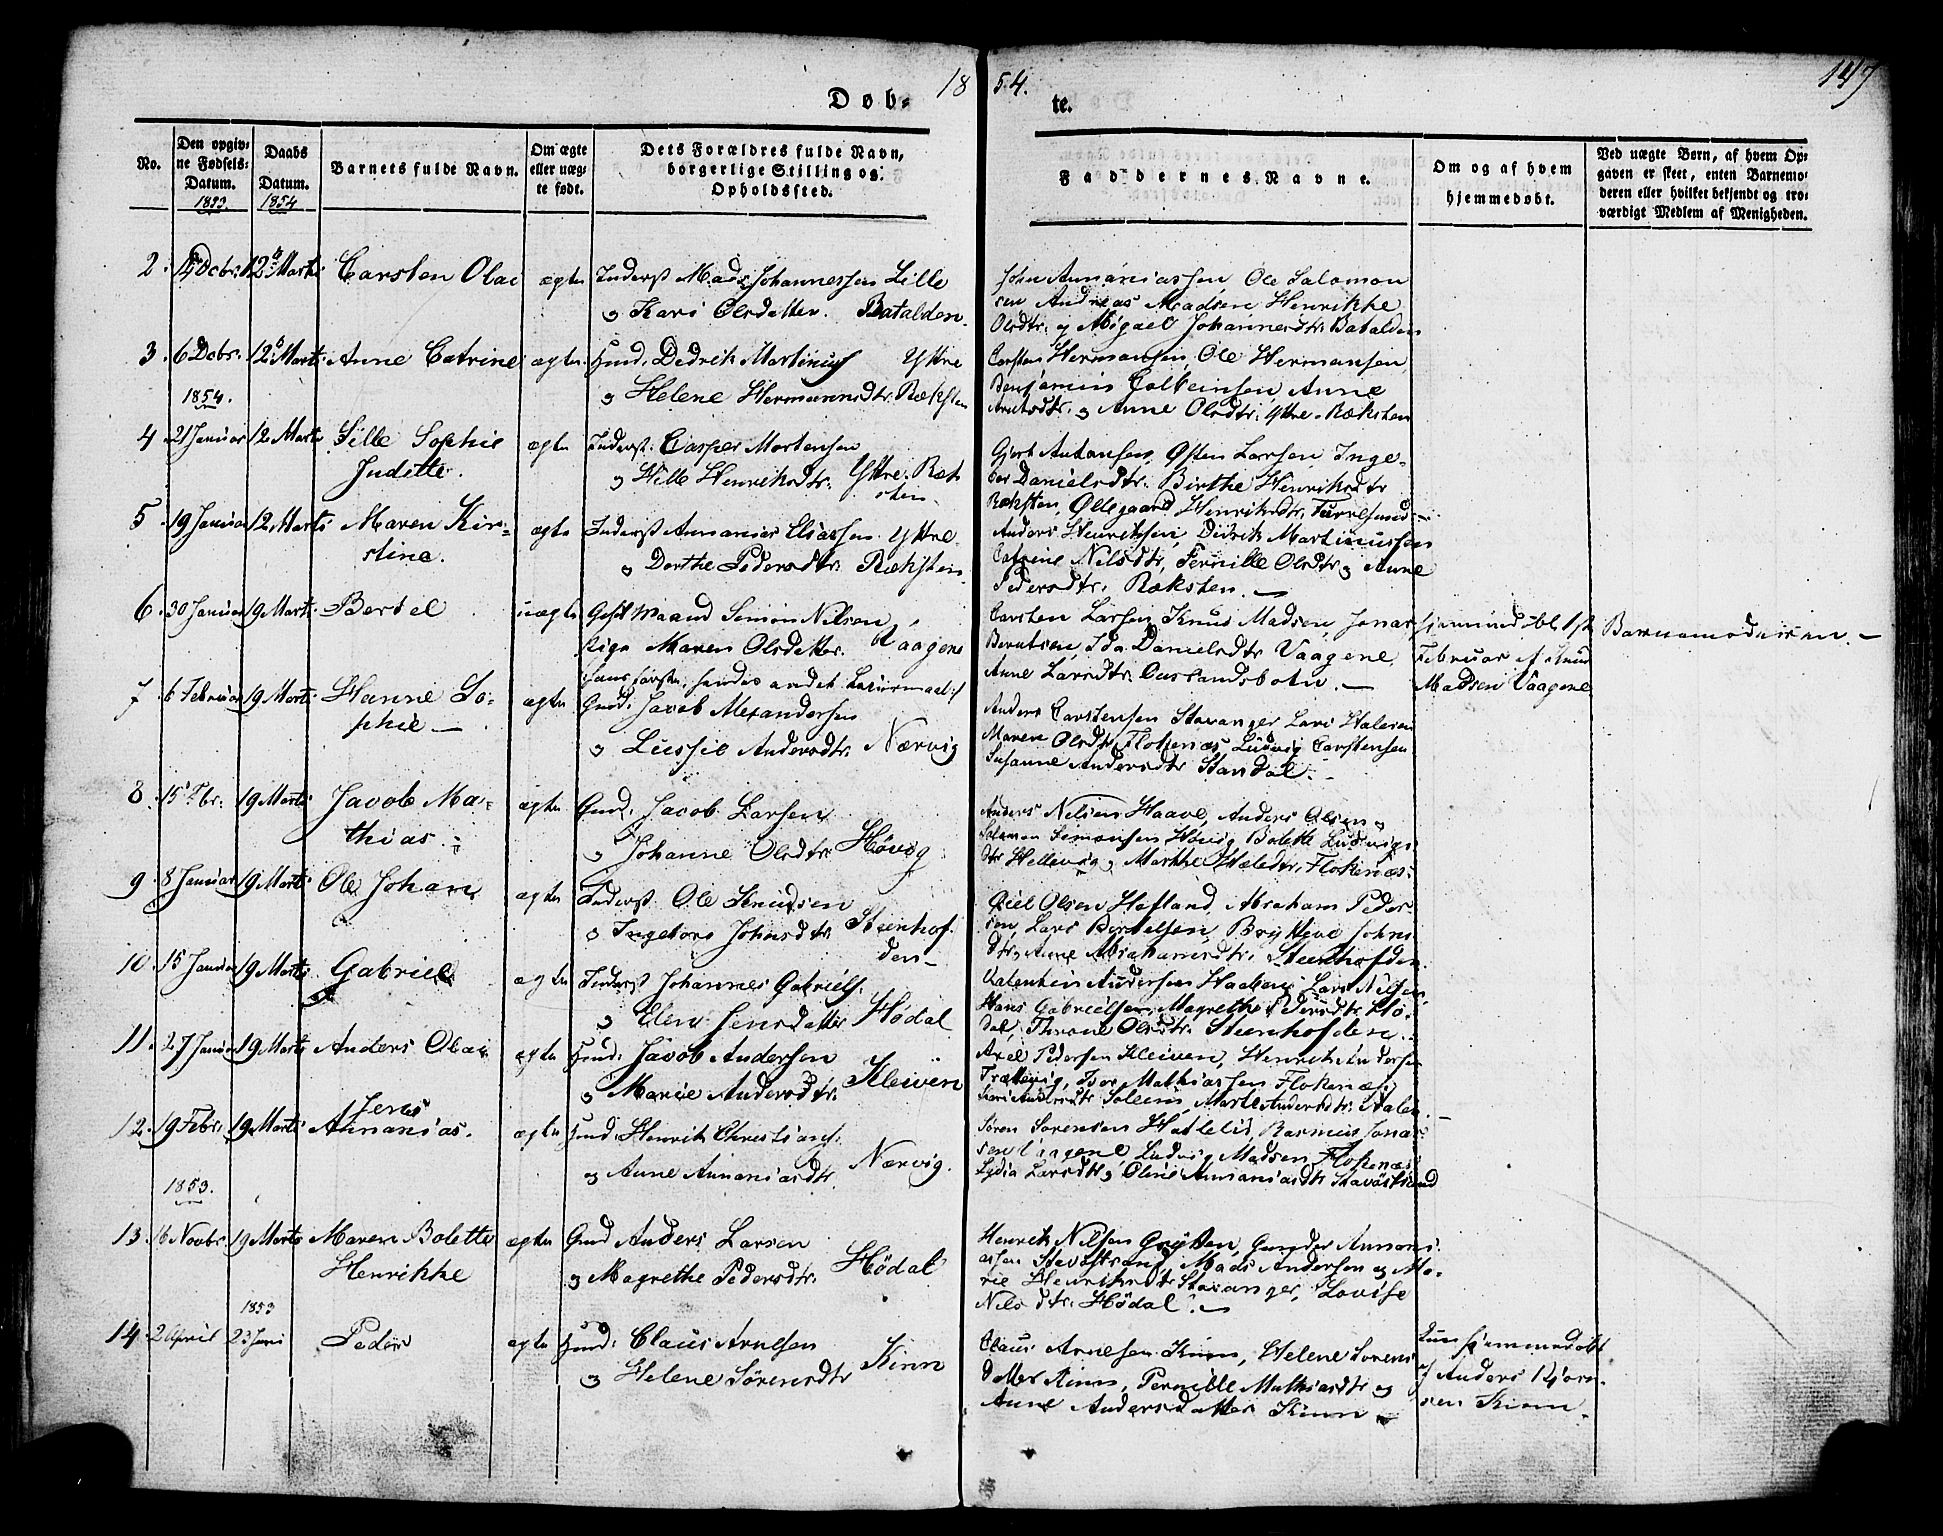 18 54. 147
Døb- te.
No.
Den opgiv-
ne Fødsels-
Datum.
1853.
Daabs
Datum.
1854
Barnets fulde Navn.
Om ægte
eller uæg-
te født.
Dets Forældres fulde Navn,
borgerlige Stilling og
Opholdssted.
Faddernes Navne.
Om og af hvem
hjemmedøbt.
Ved uægte Børn, af hvem Op-
gaven er skeet, enten Barnemo-
deren eller hvilket bekjendt og tro-
værdigt Medlem af Menigheden.
2. 14 Dcbr. 12 Marts Carsten Olai ægte Inderst Mads Johannessen Lille
og Kari Olsdatter. Batalden.
John Annaniassen, Ole Salomon
sen Andreas Madsen Henrikke
Olsdtr. og Migael Johannesdtr. Batalden
3. 6 Dcbr. 12 Marts Anne Catrine ægte Gmd. Dedrik Martinus Yttre
og Helene Hermannsdtr. Ræksten
Carsten Hermansen, Ole Hermansen,
Benjamin Anne
Arntsdtr. og Anne Olsdtr. Yttre-Ræksten
1854.
4. 21 Januar 12 Marts Sille Sophie
Judette.
ægte Inderst. Casper Mortensen
og Sille Henriksdtr. Yttre-Ræk
sten.
Gjert Antonsen, Østen Larsen Inge-
bor Danielsdtr. Birthe Henriksdtr
Ræksten, Øllegaard Henriksdtr.
5. 19 Januar 12 Marts Maren Kir-
stine.
ægte Inderst Annanias Eliassen Yttre-
og Dorthe Pedersdtr. Ræksten.
Anders Henriksen, Didrik Martinussen
Catrine Nilsdtr, Pernille Olsdtr og Anne
Pedersdtr. Ræksten.
6. 30 Januar 19 Marts Bertel uægte Simon Nilsen,
Pige Maren Olsdatter. Vaagene
hans første, hendes andet Leiermaal
Carsten Larsen Knud Madsen, Jonas
Berntsen, Ida Danielsdtr Vaagene,
Anne Larsdtr.
hjemmedøbt 1ste
Februar af Knud
Madsen Vaagene
Barnemoderen
7. 6 Februar 19 Marts Hanne So-
phie
ægte Gmd. Jacob Alexandersen
og Lussie Andersdtr. Nærvig
Anders Carstensen Stavanger Lars
Maren Olsdtr. Flokenæs Ludvig Carstensen
Susanne Andersdtr Standal.
8. 15 Fbr. 19 Marts Jacob Ma-
thias.
ægte Gmd. Jacob Larsen
og Johanne Olsdtr. Høvig
Anders Nilsen Haave, Anders Olsen og
Salomon Simonsen Høvig Bolette Ludvigs
dtr Hellevig og Marthe Flokenæs.
9. 8 Januar 19 Marts Ole Johan ægte Inderst Ole Knudsen
og Ingebore Johnsdtr. Steenhof-
den
Olsen Hofland, Abraham Peder-
sen, Lars Bertelsen, Johns
dtr. Anne Abrahamsdtr. Steenhofden.
10. 15 Januar 19 Marts Gabriel ægte Inderst Johannes Gabriels.
og Elen Jensdatter Hødal
Valentin Andersen Lars Nilsen
Hans Gabrielsen, Magrethe Hø-
dal, Olsdtr. Steenhofden.
11. 27 Januar 19 Marts Anders Olai ægte Gmd. Jacob Andersen
og Marie Andersdtr. Kleiven
Axel Pedersen Kleiven, Henrik Anders
Trættevig, Ivar Mathiassen Flokenæs,
12. 19 Febr. 19 Marts Jens
Annanias.
ægte Gmd. Henrik Christians.
og Anne Annaniasdtr. Nærvig.
Søren Sørensen Hatlelid, Rasmus Jonas-
sen Vaagene, Ludvig Madsen, Flokenæs
Lydia Larsdtr. og Oline Annaniasdtr. Stavøstrand
1853.
13. 16 Novbr. 19 Marts Maren Bolette
Henrikke
ægte Gmd Anders Larsen
og Magrethe Pedersdtr. Hødal
Henrik Nilsen Grytten, Gunder Annani-
assen Stavøstrand, Mads Andersen og Ma-
rie Henriksdtr Stavanger, Lovise
Nilsdtr. Hødal.
1853
14. 2 April 23 Juni Peder ægte Gmd. Claus Arnesen
og Helene Sørensdtr Kinn
Claus Arnesen Kinn, Helene Sørens
datter Kinn, Pernille Mathiasdtr og
Anne Andersdatter Kinn
hjemmedøbt
af Anders
sen Kinn.